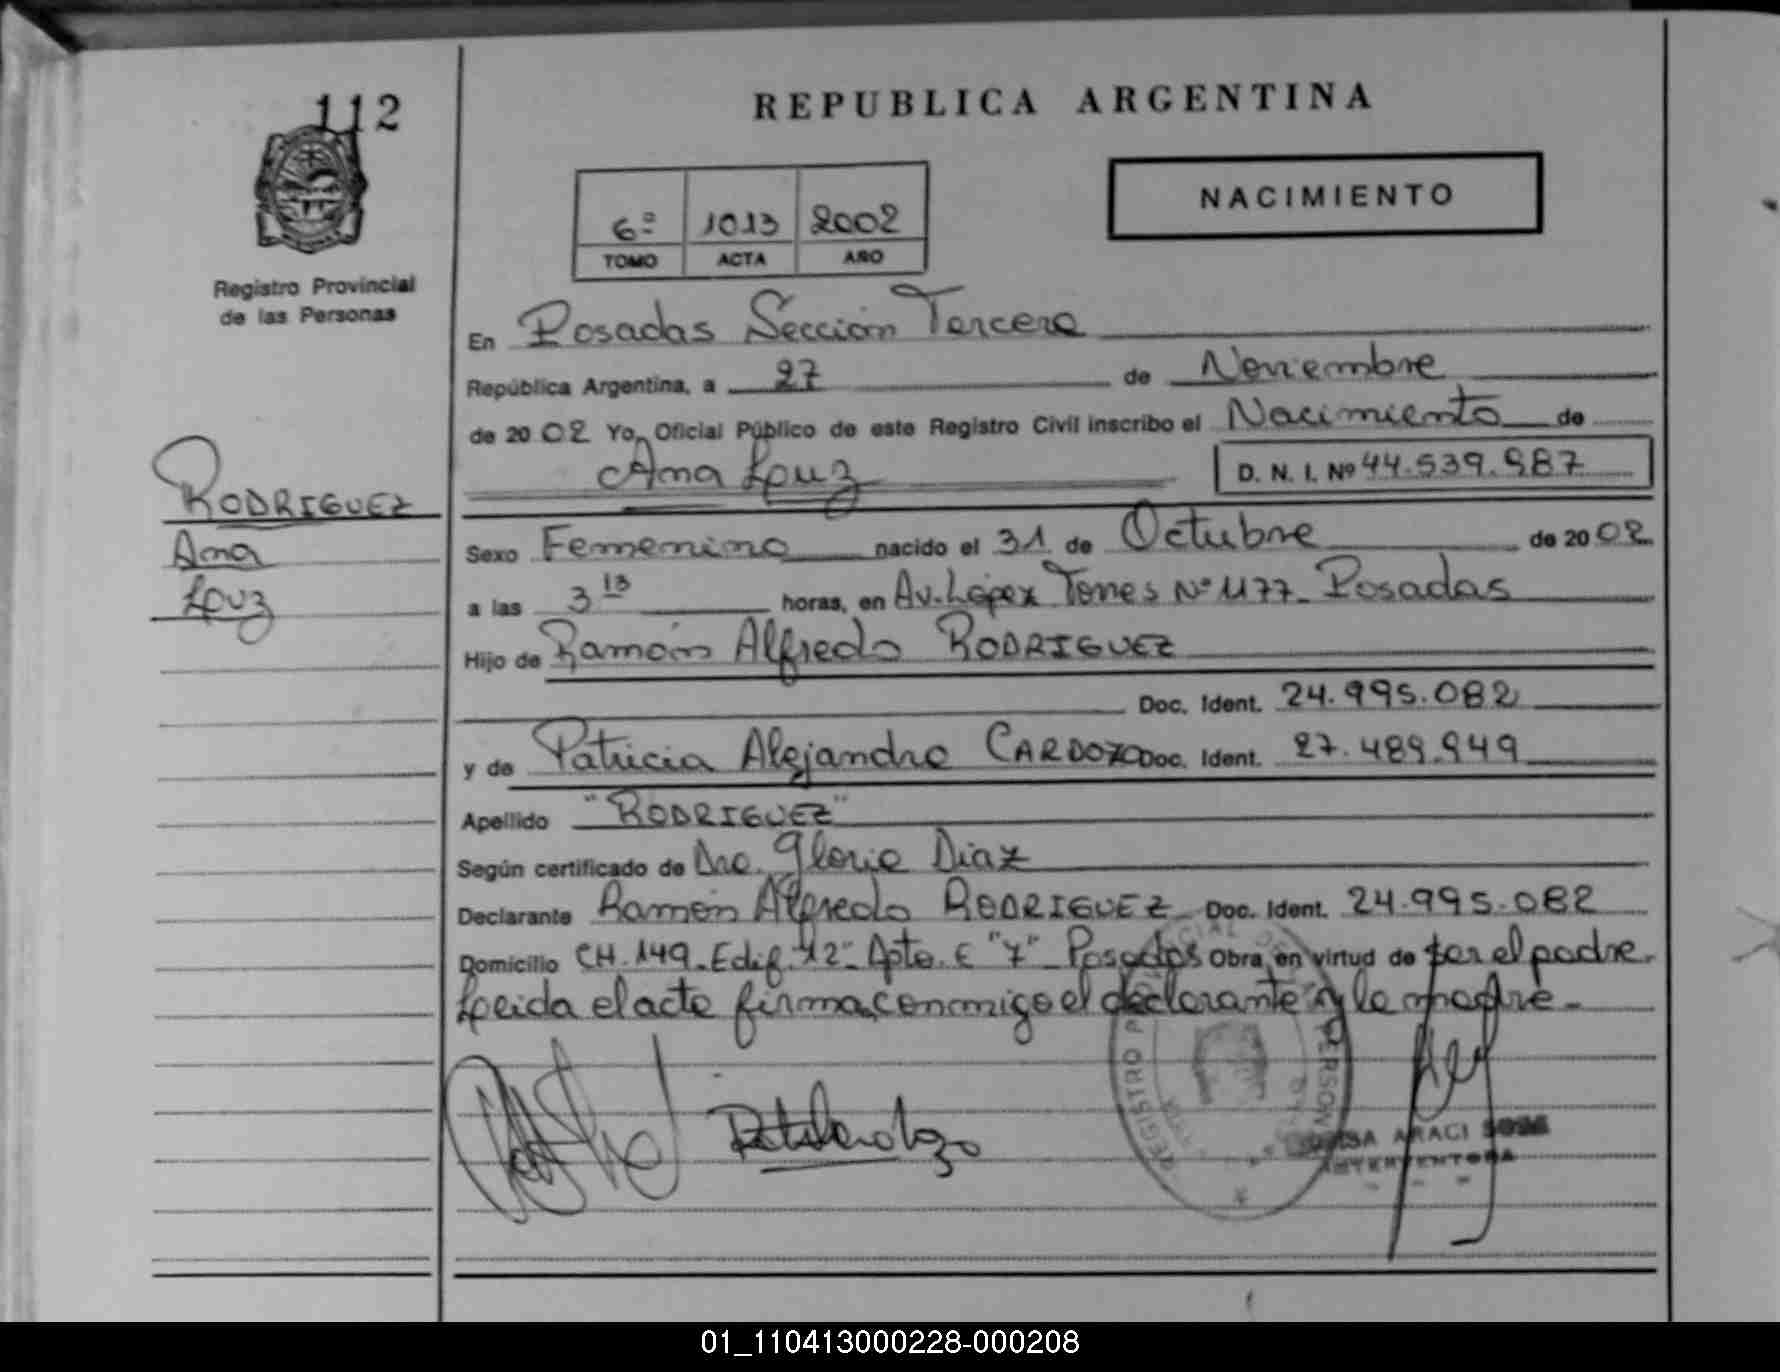 112
REPUBLICA ARGENTINA
NACIMIENTO
6º 1013 2002
TOMO ACTA AÑO
Registro Provincial
de las Personas
En Posadas Sección Tercera
República Argentina, a 27 de Noviembre
de 2002 Yo, Oficial Público de este Registro Civil inscribo el Nacimiento de
Ana Luz D. N. I. Nº 44.539.987
RODRIGUEZ
Ana
Luz
Sexo Femenino nacido el 31 de Octubre de 2002
a las 3 13 horas, en Av. López Torres Nº 1177 - Posadas
Hijo de Ramón Alfredo RODRIGUEZ
Doc. Ident. 24.995.082
y de Patricia Alejandra CARDOZO Doc. Ident. 27.489.949
Apellido "RODRIGUEZ"
Según certificado de Dra. Gloria Diaz
Declarante Ramón Alfredo RODRIGUEZ Doc. Ident. 24.995.082
Domicilio CH. 149 - Edif. 12 - Apto. E "7" - Posadas Obra en virtud de ser el padre.
Leida el acta firma conmigo el declarante y la madre -
REGISTRO
ARACI
INTERVENTORA
01_110413000228-000208